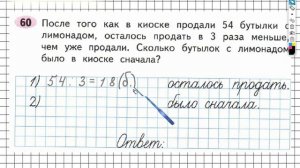 60 После того как в киоске продали 54 бутылки с
лимонадом, осталось продать в 3 раза меньше,
чем уже продали. Сколько бутылок с лимонадом
было в киоске сначала?
1) 54 : 3 = 18 (б.) осталось продать.
2) было сначала.
Ответ: